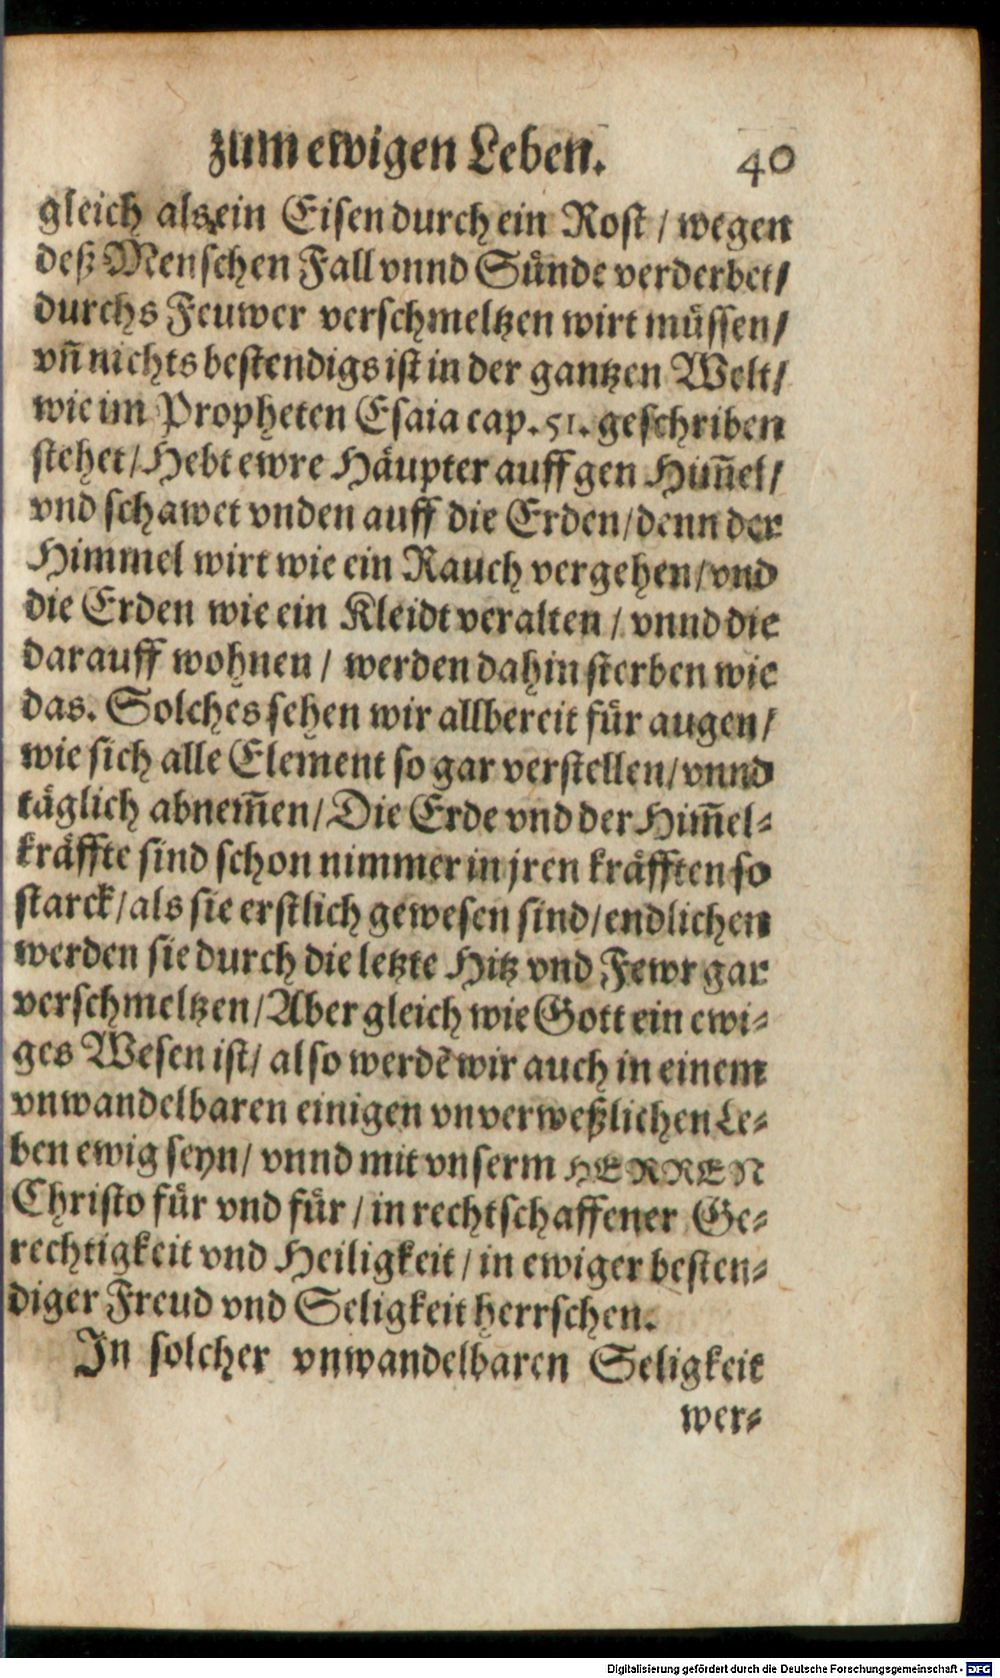 zum ewigen Leben. 40
gleich als ein Eisen durch ein Rost / wegen
deß Menschen Fall vnnd Sünde verderbet /
durchs Feuwer verschmeltzen wirt müssen /
vñ nichts bestendigs ist in der gantzen Welt /
wie im Propheten Esaia cap. 51. geschriben
stehet / Hebt ewre Häupter auff gen Him̃el /
vnd schawet vnden auff die Erden / denn der
Himmel wirt wie ein Rauch vergehen / vnd
die Erden wie ein Kleidt veralten / vnnd die
darauff wohnen / werden dahin sterben wie
das. Solches sehen wir allbereit für augen /
wie sich alle Element so gar verstellen / vnnd
täglich abnem̃en / Die Erde vnd der Him̃el-
kräffte sind schon nimmer in jren kräfften so
starck / als sie erstlich gewesen sind / endlichen
werden sie durch die letzte Hitz vnd Fewr gar
verschmeltzen / Aber gleich wie Gott ein ewi-
ges Wesen ist / also werdẽ wir auch in einem
vnwandelbaren einigen vnverweßlichen Le-
ben ewig seyn / vnnd mit vnserm HERREN
Christo für vnd für / in rechtschaffener Ge-
rechtigkeit vnd Heiligkeit / in ewiger besten-
diger Freud vnd Seligkeit herrschen.
In solcher vnwandelbaren Seligkeit
wer-
Digitalisierung gefördert durch die Deutsche Forschungsgemeinschaft - DFG